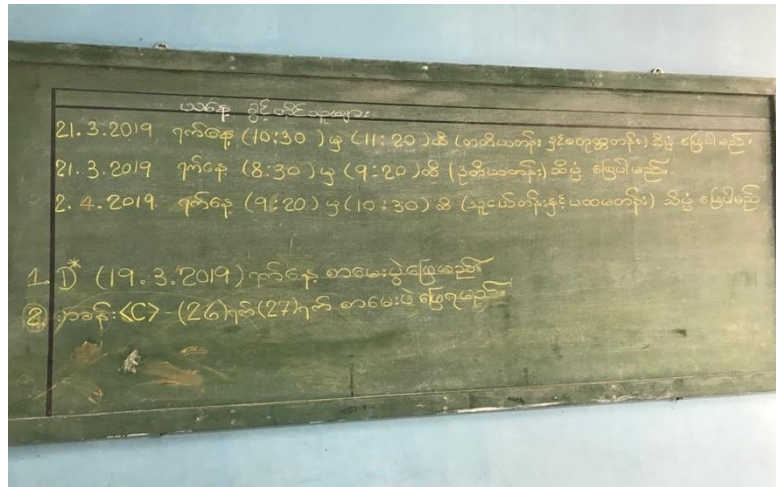 ယနေ့ ခွင့်တိုင်သူများ
21.3.2019 ရက်နေ့ (10:30) မှ (11:20) ထိ (တတိယတန်း နှင့်စတုတ္ထတန်း) သိပ္ပံ ဖြေပါမည်။
21.3.2019 ရက်နေ့ (8:30) မှ (9:20) ထိ (ဒုတိယတန်း) သိပ္ပံ ဖြေပါမည်။
2.4.2019 ရက်နေ့ (9:20) မှ (10:30) ထိ (သူငယ်တန်းနှင့် ပထမတန်း) သိပ္ပံ ဖြေပါမည်
1. D* (19.3.2019) ရက်နေ့ စာမေးပွဲဖြေမည်။
2. အခန်း <C> - (26)ရက် (27)ရက် စာမေးပွဲ ဖြေရမည်။